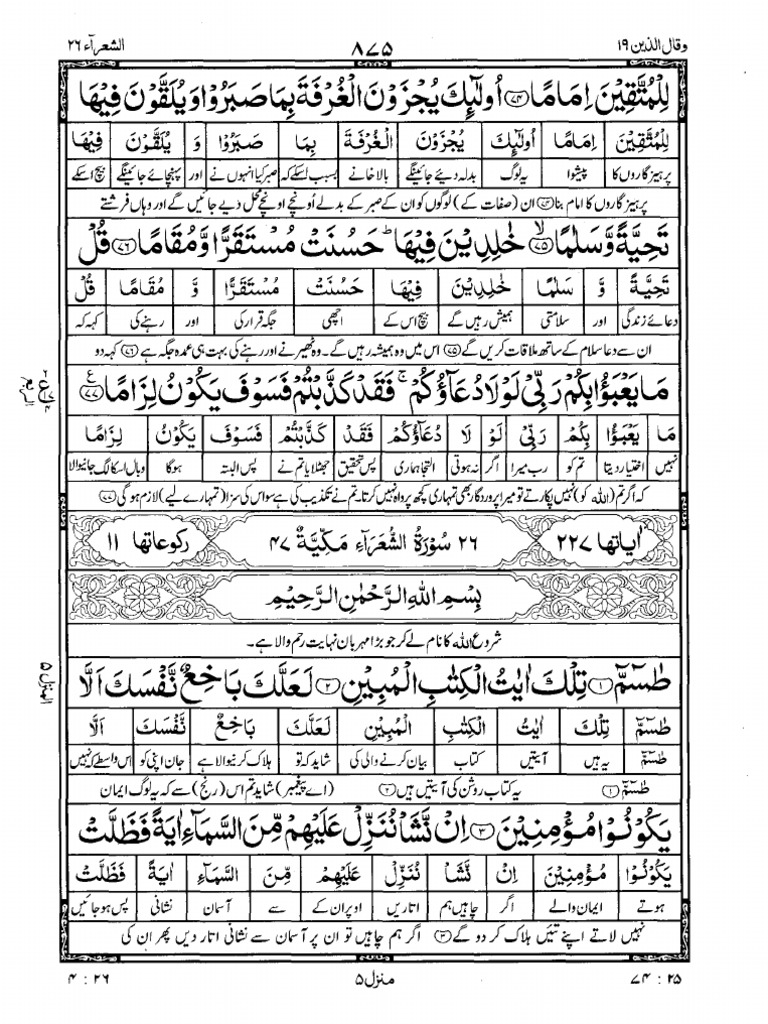 وقال الذين ۱۹ ۸۷۵ الشعرآء ۲۶
لِلْمُتَّقِيْنَ اِمَامًا ﴿۷۴﴾ اُولٰٓئِكَ يُجْزَوْنَ الْغُرْفَةَ بِمَا صَبَرُوْا وَيُلَقَّوْنَ فِيْهَا
لِلْمُتَّقِيْنَ اِمَامًا اُولٰٓئِكَ يُجْزَوْنَ الْغُرْفَةَ بِمَا صَبَرُوْا وَ يُلَقَّوْنَ فِيْهَا
پرہیز گاروں کا پیشوا یہ لوگ بدلہ دیئے جائینگے بالا خانے بسبب اسکے کہ صبر کیا انہوں نے اور پہنچائے جائینگے بیچ اسکے
پرہیز گاروں کا امام بنا ﴿۷۴﴾ ان (صفات کے) لوگوں کو ان کے صبر کے بدلے اُونچے اونچے محل دیے جائیں گے اور وہاں فرشتے
تَحِيَّةً وَّسَلٰمًا ﴿۷۵﴾ خٰلِدِيْنَ فِيْهَا ؕ حَسُنَتْ مُسْتَقَرًّا وَّمُقَامًا ﴿۷۶﴾ قُلْ
تَحِيَّةً وَّ سَلٰمًا خٰلِدِيْنَ فِيْهَا حَسُنَتْ مُسْتَقَرًّا وَّ مُقَامًا قُلْ
دعائے زندگی اور سلامتی ہمیش رہیں گے بیچ اس کے اچھی جگہ قرار کی اور رہنے کی کہہ کہ
ان سے دعا سلام کے ساتھ ملاقات کریں گے ﴿۷۵﴾ اس میں وہ ہمیشہ رہیں گے۔ وہ ٹھہرنے اور رہنے کی بہت ہی عمدہ جگہ ہے ﴿۷۶﴾ کہہ دو
مَا يَعْبَؤُا بِكُمْ رَبِّيْ لَوْلَا دُعَآؤُكُمْ ۚ فَقَدْ كَذَّبْتُمْ فَسَوْفَ يَكُوْنُ لِزَامًا ﴿۷۷﴾
مَا يَعْبَؤُا بِكُمْ رَبِّيْ لَوْ لَا دُعَآؤُكُمْ فَقَدْ كَذَّبْتُمْ فَسَوْفَ يَكُوْنُ لِزَامًا
نہیں اختیار دیتا تم کو رب میرا اگر نہ ہوتی التجا تمہاری پس تحقیق جھٹلایا تم نے پس البتہ ہوگا وبال اسکا لگ جانیوالا
کہ اگر تم (اللہ کو) نہیں پکارتے تو میرا پروردگار بھی تمہاری کچھ پرواہ نہیں کرتا۔ تم نے تکذیب کی ہے سو اس کی سزا (تمہارے لیے) لازم ہوگی ﴿۷۷﴾
اٰیاتھا ۲۲۷ ۲۶ سُوْرَةُ الشُّعَرَآءِ مَكِّيَّةٌ ۴۷ رکوعاتھا ۱۱
بِسْمِ اللهِ الرَّحْمٰنِ الرَّحِيْمِ
شروع اللہ کا نام لے کر جو بڑا مہربان نہایت رحم والا ہے۔
طٰسٓمّٓ ﴿۱﴾ تِلْكَ اٰيٰتُ الْكِتٰبِ الْمُبِيْنِ ﴿۲﴾ لَعَلَّكَ بَاخِعٌ نَّفْسَكَ اَلَّا
طٰسٓمّٓ تِلْكَ اٰيٰتُ الْكِتٰبِ الْمُبِيْنِ لَعَلَّكَ بَاخِعٌ نَّفْسَكَ اَلَّا
طٰسٓمّٓ یہ ہیں آیتیں کتاب بیان کرنے والی کی شاید کہ تو ہلاک کرنیوالا ہے جان اپنی کو اس واسطے کہ نہیں
طٰسٓمّٓ ﴿۱﴾ یہ کتاب روشن کی آیتیں ہیں ﴿۲﴾ (اے پیغمبر) شاید تم اس (رنج) سے کہ یہ لوگ ایمان
يَكُوْنُوْا مُؤْمِنِيْنَ ﴿۳﴾ اِنْ نَّشَاْ نُنَزِّلْ عَلَيْهِمْ مِّنَ السَّمَآءِ اٰيَةً فَظَلَّتْ
يَكُوْنُوْا مُؤْمِنِيْنَ اِنْ نَّشَاْ نُنَزِّلْ عَلَيْهِمْ مِّنَ السَّمَآءِ اٰيَةً فَظَلَّتْ
ہوتے ایمان والے اگر چاہیں ہم اتاریں اوپر ان کے سے آسمان نشانی پس ہو جائیں
نہیں لاتے اپنے تئیں ہلاک کر دو گے ﴿۳﴾ اگر ہم چاہیں تو ان پر آسمان سے نشانی اتار دیں پھر ان کی
۲۵ : ۷۴ منزل ۵ ۲۶ : ۴
المنزل ۵